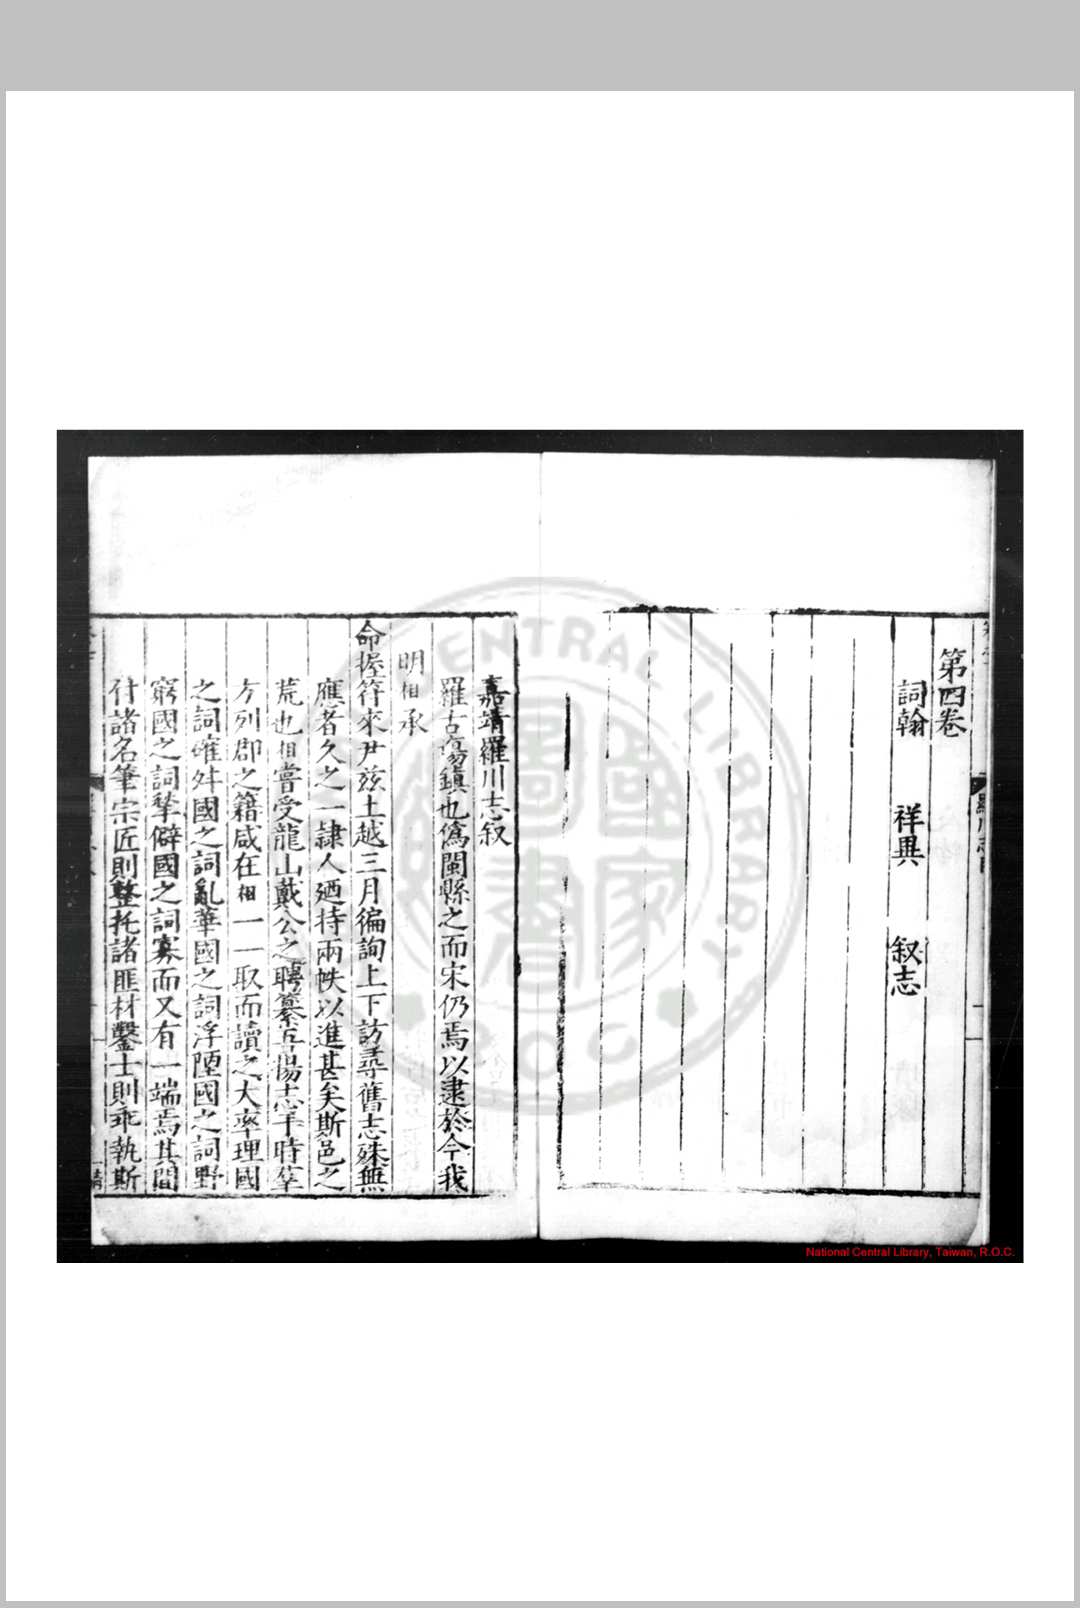 第四卷
詞翰　祥異　叙志
嘉靖羅川志叙
羅古瘍鎮也僞閩縣之而宋仍焉以逮於今我
明相承
命握符來尹兹土越三月徧詢上下訪尋舊志殊無
應者久之一隷人廼持兩帙以進甚矣斯邑之
荒也相嘗受龍山戴公之聘纂 陽志于時萃
方列郡之籍咸在相一一取而讀之大率理國
之詞確舛國之詞亂華國之詞浮陋國之詞野
窮國之詞 僻國之詞寡而又有一端焉其間
付諸名筆宗匠則整托諸匪材鑿士則乖執斯
NATIONAL CENTRAL LIBRARY
R.O.C.
國家圖書
National Central Library, Taiwan, R.O.C.